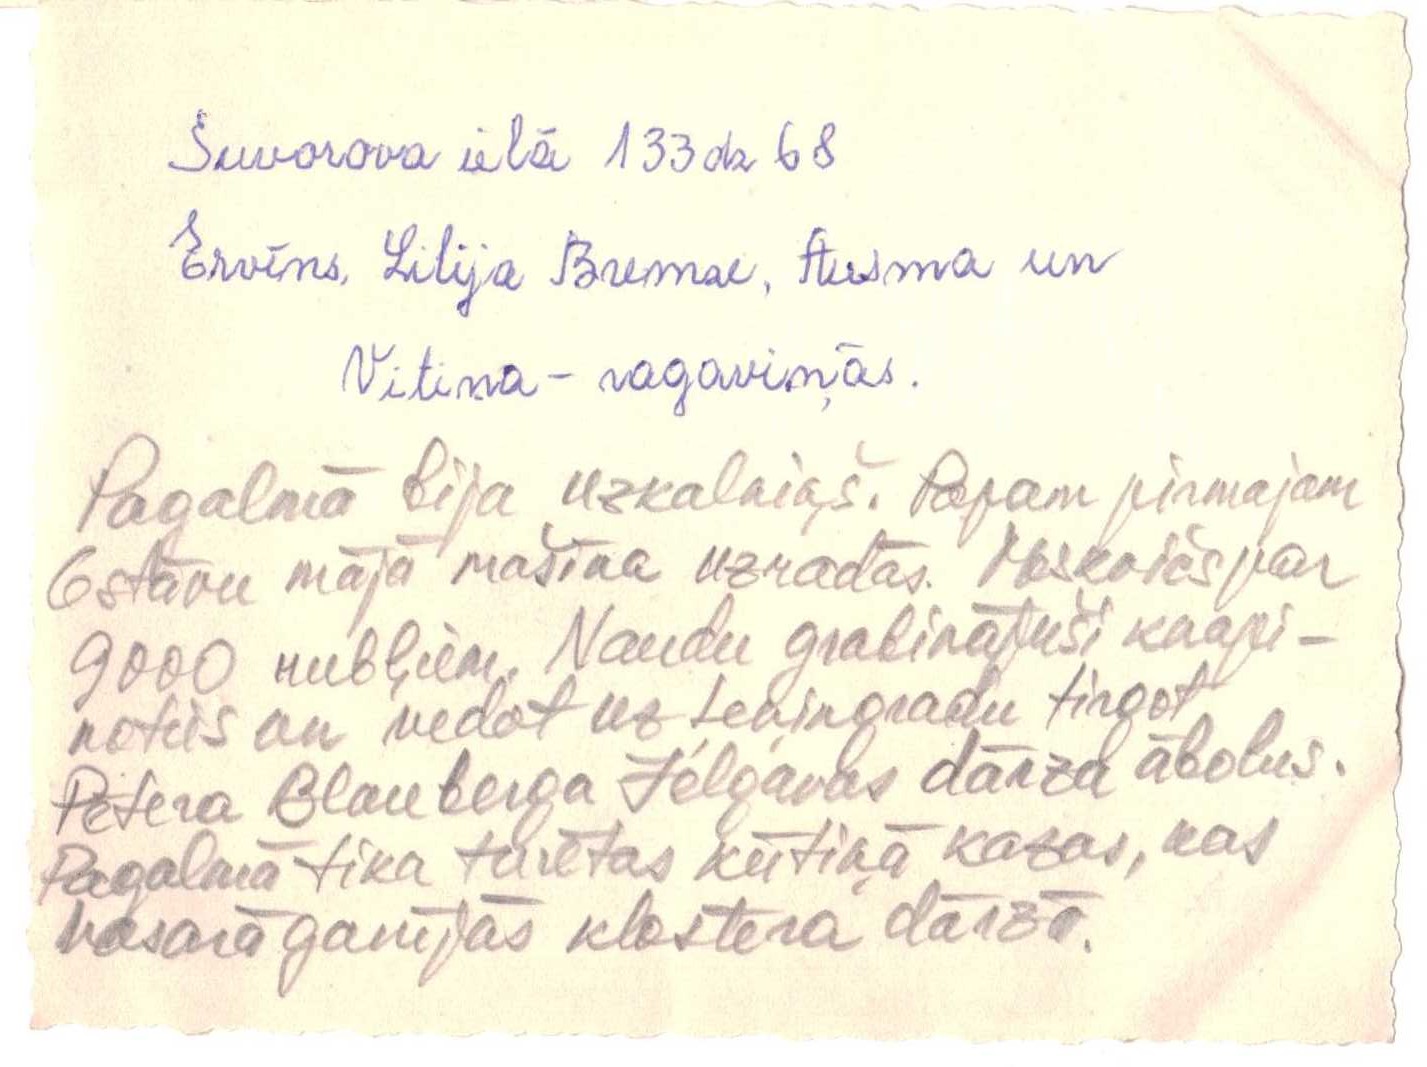 Suvorova ielā 133 dz 68
Ervīns, Lilija Bremze, Ausma un
Vitiņa - ragaviņās.
Pagalmā bija uzkalniņš. Papam pirmajam
6 stāvu mājā mašīna uzradās. Moskvičs par
9000 rubļiem. Naudu grabinājuši kaapi-
notiis un vedot uz Ļeņingradu tirgot
Pētera Blauberga Jelgavas dārza ābolus.
Pagalmā tika turētas kūtiņā kazas, kas
vasarā ganījās klostera dārzā.